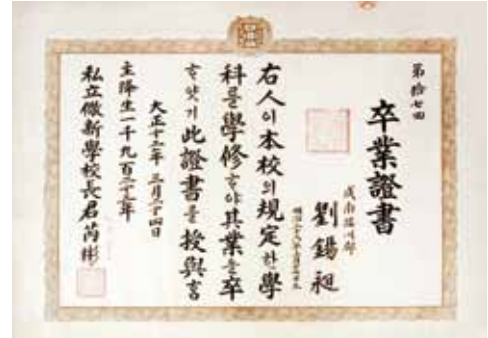 第拾七回
卒業證書
劉錫昶
右人이本校의規定한學
科를學修ᄒᆞ야其業을卒
ᄒᆞ얏기此證書를授與ᄒᆞᆷ
大正十二年 三月二十四日
主降生一千九百二十三年
私立儆新學校長君芮彬